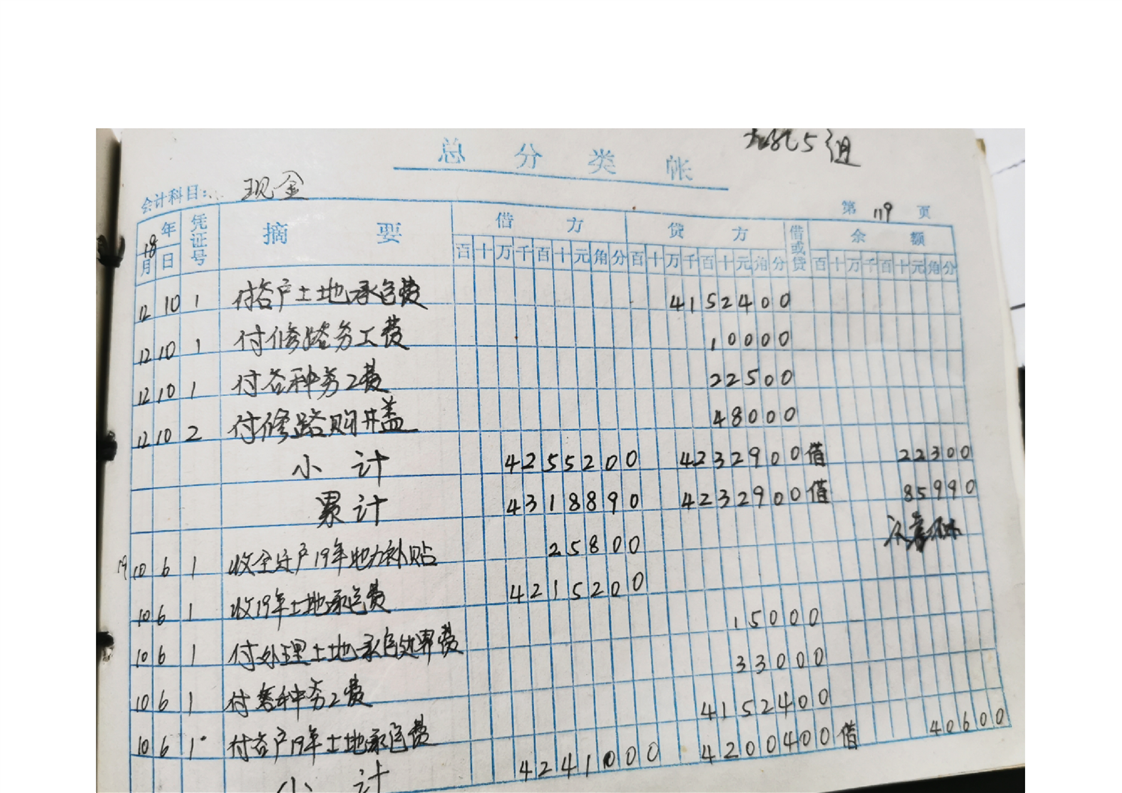 5组
总分类帐
会计科目: 现金
第 119 页
18年 凭证号 摘要 借方 贷方 借或贷 余额
月 日 百十万千百十元角分 百十万千百十元角分 百十万千百十元角分
12 10 1 付各户土地承包费 4152400
12 10 1 付修路务工费 10000
12 10 1 付各种务工费 22500
12 10 2 付修路购井盖 48000
小计 4255200 4232900 借 22300
累计 4318890 4232900 借 85990
19 10 6 1 收全迁户19年地力补贴 25800
10 6 1 收19年土地承包费 4215200
10 6 1 付处理土地承包边界费 15000
10 6 1 付各种务工费 33000
10 6 1 付各户19年土地承包费 4152400
小计 4241000 4200400 借 40600